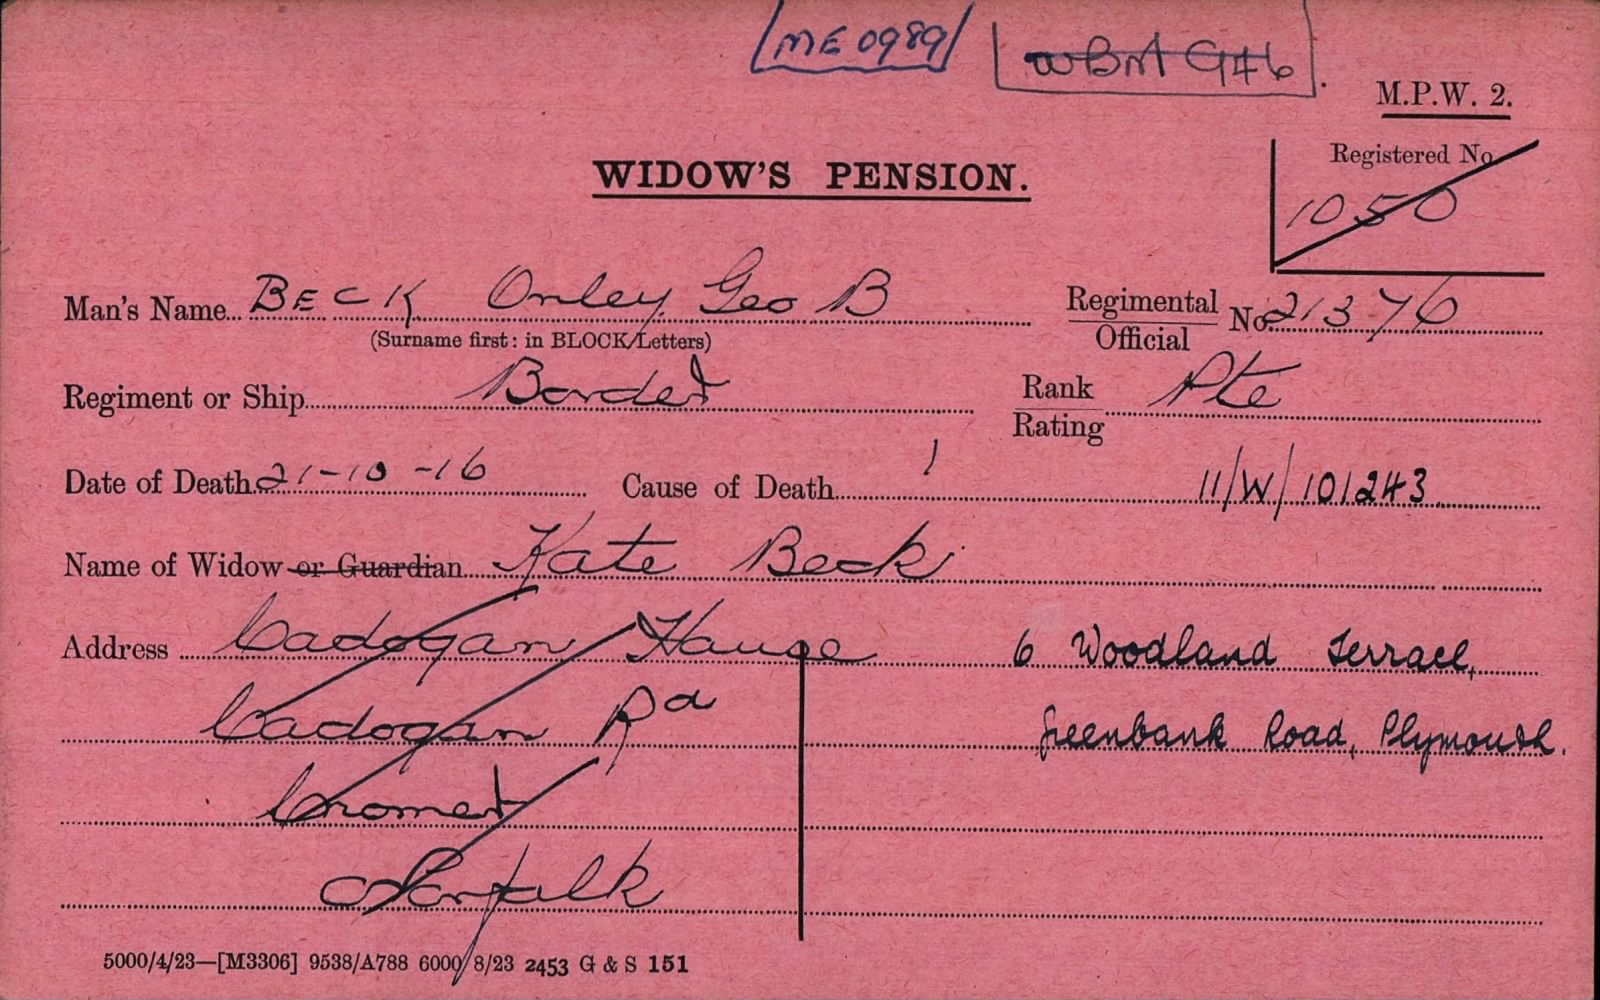 ME 0989
WBM G46
M.P.W. 2.
Registered No.
1050
WIDOW'S PENSION.
Man's Name BECK Onley Geo B
(Surname first: in BLOCK Letters)
Regimental
Official No. 21376
Regiment or Ship Border
Rank
Rating Pte
Date of Death 21-10-16 Cause of Death 11/W/101243
Name of Widow or Guardian Kate Beck
Address Cadogan House 6 Woodland Terrace,
Cadogan Rd Greenbank Road, Plymouth.
Cromer
Norfolk
5000/4/23—[M3306] 9538/A788 6000/8/23 2453 G & S 151